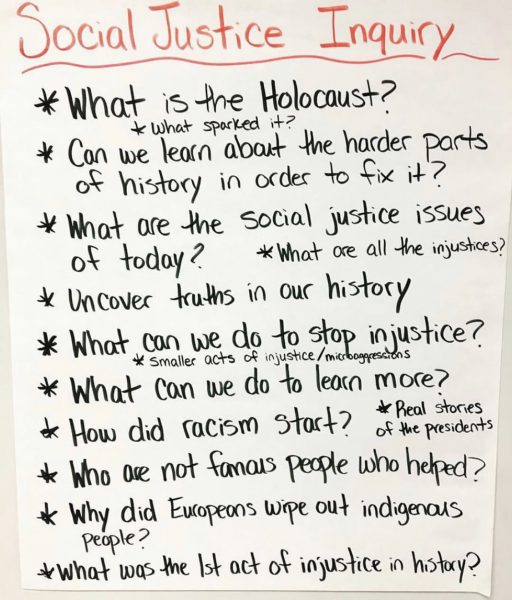 Social Justice Inquiry
* What is the Holocaust?
* What sparked it?
* Can we learn about the harder parts
of history in order to fix it?
* What are the social justice issues
of today?
* What are all the injustices?
* Uncover truths in our history
* What can we do to stop injustice?
* Smaller acts of injustice/microaggressions
* What can we do to learn more?
* How did racism start?
* Real stories
of the presidents
* Who are not famous people who helped?
* Why did Europeans wipe out indigenous
people?
* What was the 1st act of injustice in history?